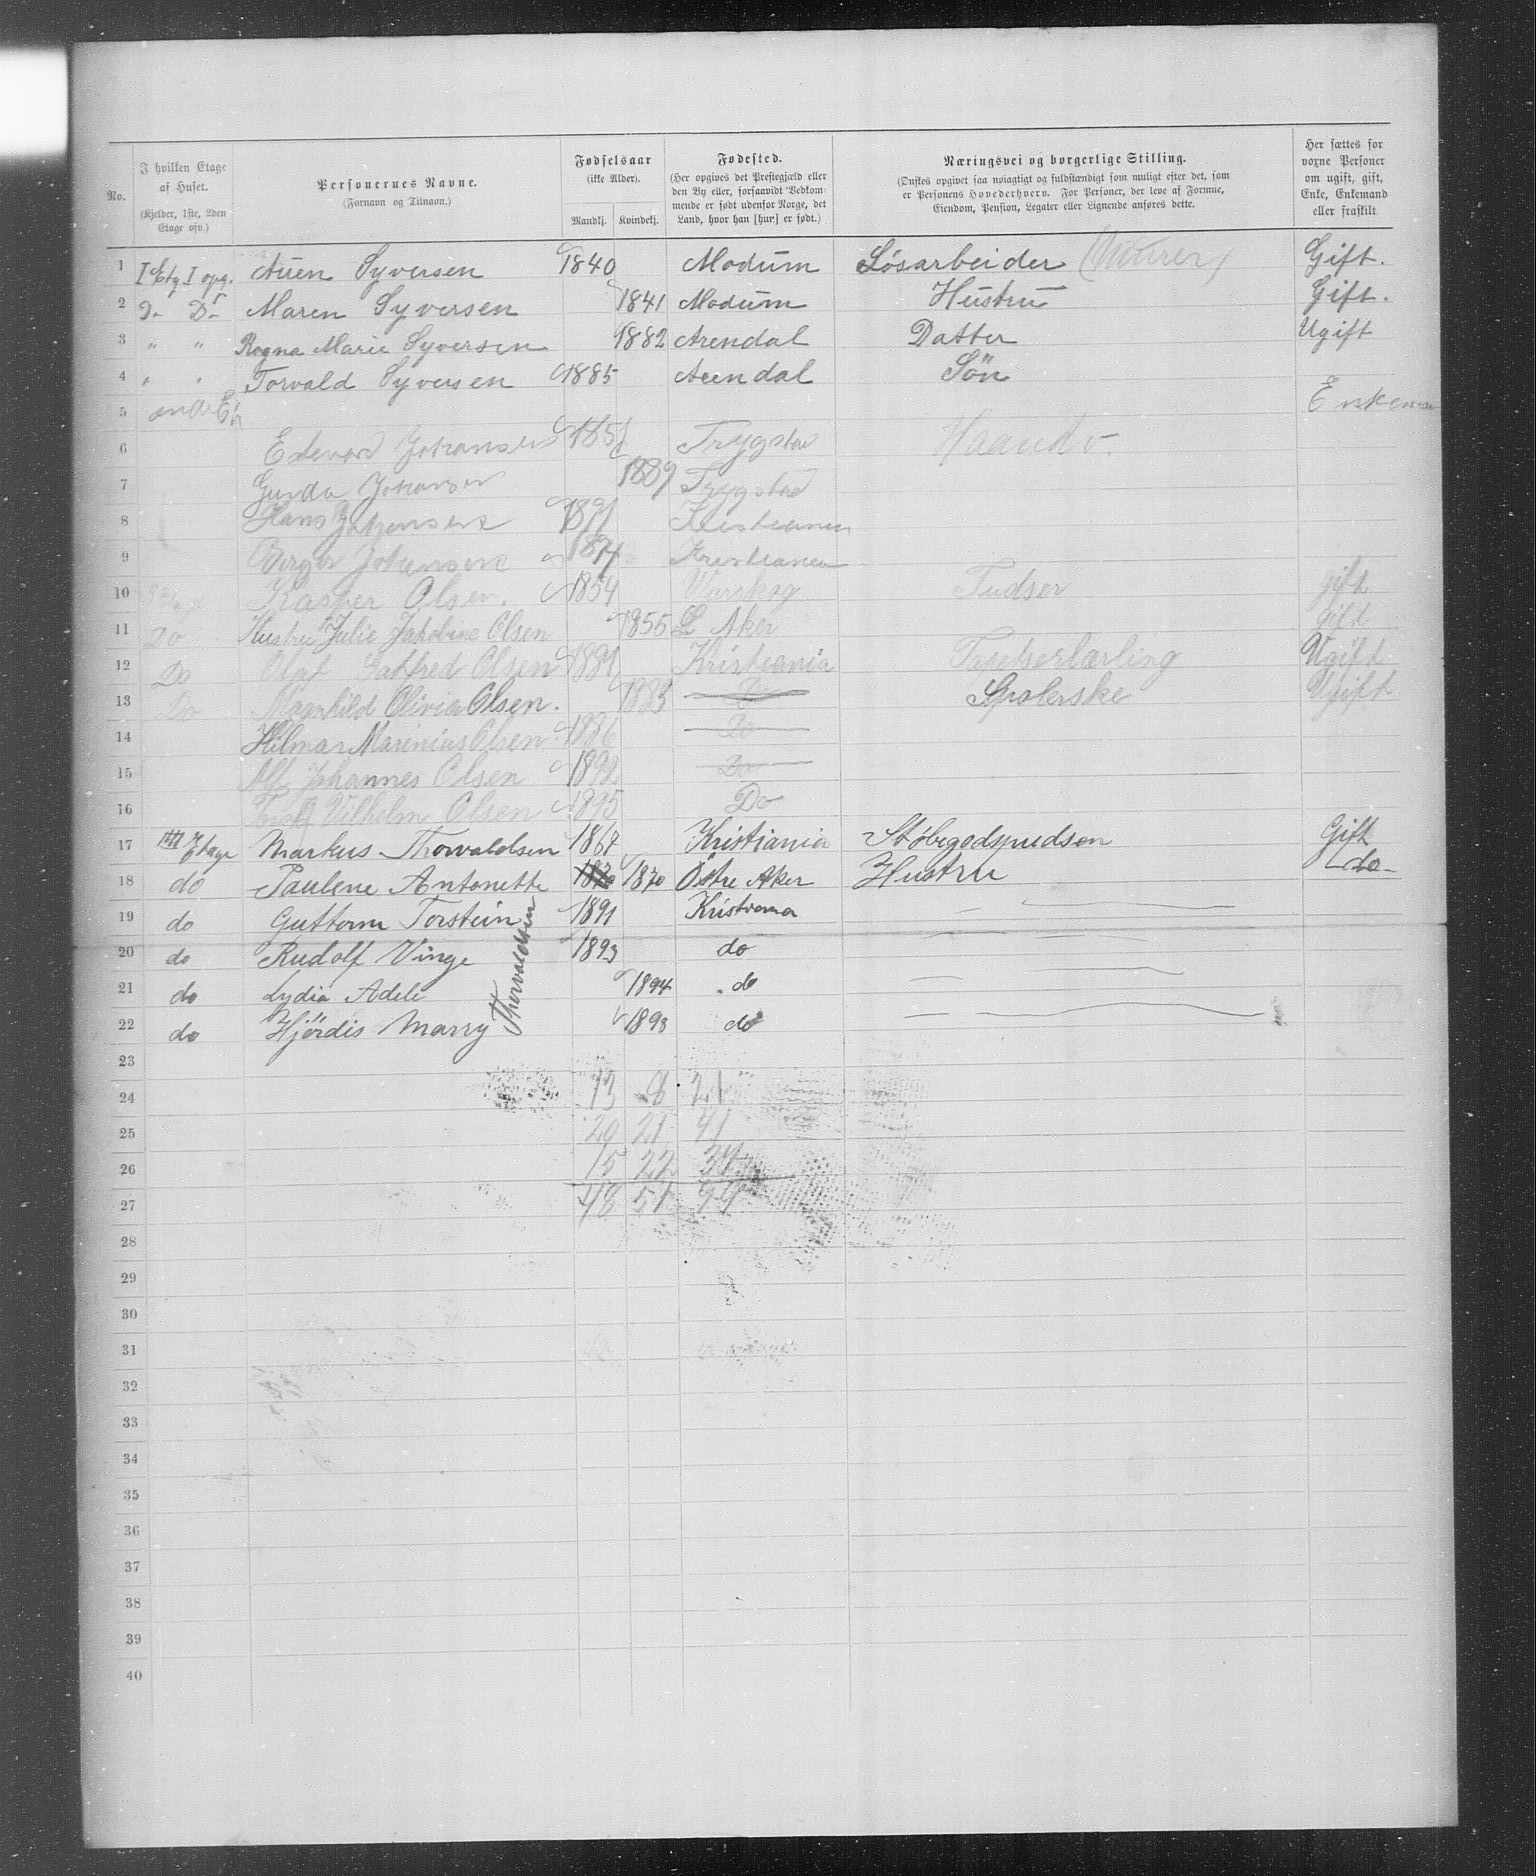 No.
I hvilken Etage af Huset. (Kjelder, 1ste, 2den Etage osv.)
Personernes Navne. (Fornavn og Tilnavn.)
Fødselsaar (ikke Alder). Mandkj. Kvindekj.
Fødested. (Her opgives det Prestegjæld eller den By eller, forsaavidt Vedkommende er født udenfor Norge, det Land, hvor han [hun] er født.)
Næringsvei og borgerlige Stilling. (Ønskes opgivet saa nøiagtigt og fuldstændigt som muligt efter det, som er Personens Hovederhverv. For Personer, der leve af Formue, Eiendom, Pension, Legater eller Lignende anføres dette.)
Her sættes for voxne Personer om ugift, gift, Enke, Enkemand eller fraskilt
1 I Etg I opg. Auen Syversen 1840 Modum Løsarbeider (Murer) Gift.
2 D- D- Maren Syversen 1841 Modum Hustru Gift.
3 " " Ragna Marie Syversen 1882 Arendal Datter Ugift
4 " " Torvald Syversen 1885 Arendal Søn
5 Enkem
6 Edevard Johansen 1851 Trygstad Haandv.
7 Gunda Johansen 1889 Trygstad
8 Hans Johansen 1891 Kristiania
9 Birger Johansen 1894 Kristiania
10 Kasper Olsen. 1854 Urskog Tudser gift
11 Do Hustru Julie Jakobine Olsen 1855 L Aker gift
12 Do Olaf Gatfred Olsen 1881 Kristiania Ugift
13 Do Magnhild Olivia Olsen. 1883 Do Spolerske Ugift
14 Hilmar Marinius Olsen 1886 Do
15 Alf Johannes Olsen 1892 Do
16 Vilhelm Olsen 1895 Do
17 III Etage Markus Thorvaldsen 1867 Kristiania Støbegodspudser Gift
18 do Paulene Antonette 1870 1870 Østre Aker Hustru do
19 do Guttorm Torstein 1891 Kristiania
20 do Rudolf Vinge 1893 do
21 do Lydia Adele 1894 do
22 do Hjördis Marry 1898 do
Thorvaldsen
23
24 13 8 21
25 20 21 41
26 15 22 37
27 48 51 99
28
29
30
31
32
33
34
35
36
37
38
39
40